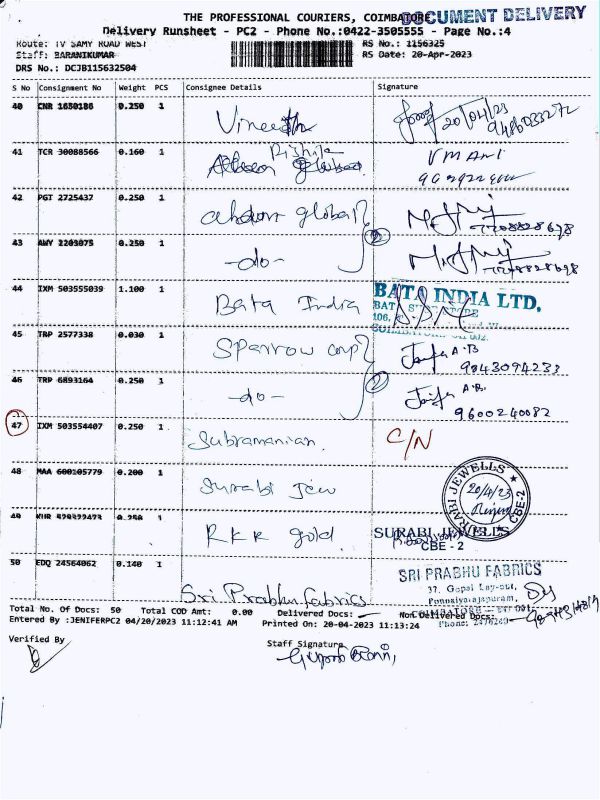 THE PROFESSIONAL COURIERS, COIMBATORE
DOCUMENT DELIVERY
Delivery Runsheet - PC2 - Phone No.:0422-3505555 - Page No.:4
Route: TV SAMY ROAD WEST
RS No.: 1156325
Staff: BARANIKUMAR
RS Date: 20-Apr-2023
DRS No.: DCJB115632504
S No Consignment No Weight PCS Consignee Details Signature
40 CNR 1650186 0.250 1 Vineeth 20/04/23
41 TCR 30088566 0.160 1 V MANI
42 PGT 2725437 0.250 1 global 7708828698
43 AWY 2203075 0.250 1 -do- 7708828698
2
44 IXM 503555039 1.100 1 Bata India
BATA INDIA LTD.
45 TRP 2577338 0.030 1 Sparrow corp A.B
9843094233
46 TRP 6893164 0.250 1 -do- A.B.
9600240082
2
47 IXM 503554407 0.250 1 Subramanian. C/N
48 MAA 600105779 0.200 1 Surabi Jew
SURABI JEWELLS
CBE-2
20/4/23
49 0.250 1 RKR gold
SURABI JEWELLS
CBE - 2
50 EDQ 24564062 0.140 1 Sri. Prabhu fabrics
SRI PRABHU FABRICS
37, Gopal Lay-out,
Ponnaiyarajapuram,
COIMBATORE
Phone: 2476249
Total No. Of Docs: 50 Total COD Amt: 0.00 Delivered Docs: Non Delivered Docs:
Entered By :JENIFERPC2 04/20/2023 11:12:41 AM Printed On: 20-04-2023 11:13:24
Verified By
Staff Signature